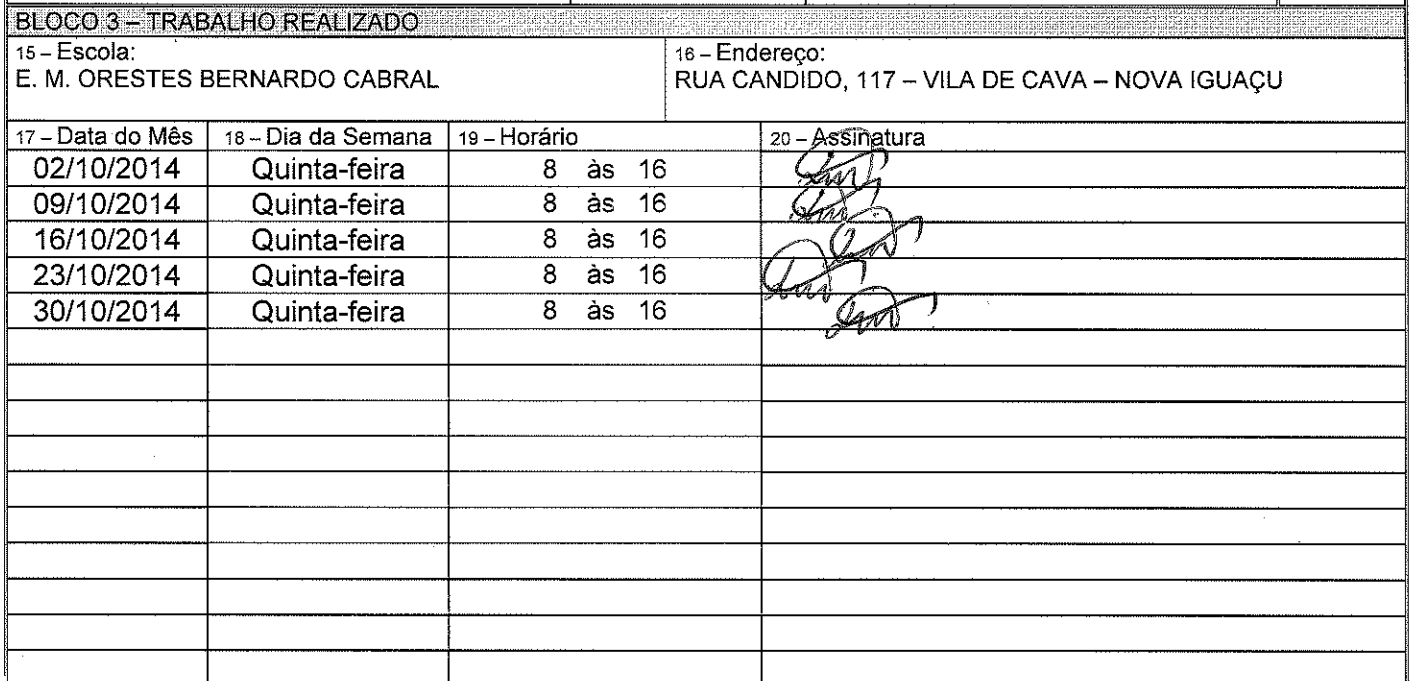 BLOCO 3 – TRABALHO REALIZADO
15 – Escola:
E. M. ORESTES BERNARDO CABRAL
16 – Endereço:
RUA CANDIDO, 117 – VILA DE CAVA – NOVA IGUAÇU
17 – Data do Mês 18 – Dia da Semana 19 – Horário 20 – Assinatura
02/10/2014 Quinta-feira 8 às 16
09/10/2014 Quinta-feira 8 às 16
16/10/2014 Quinta-feira 8 às 16
23/10/2014 Quinta-feira 8 às 16
30/10/2014 Quinta-feira 8 às 16